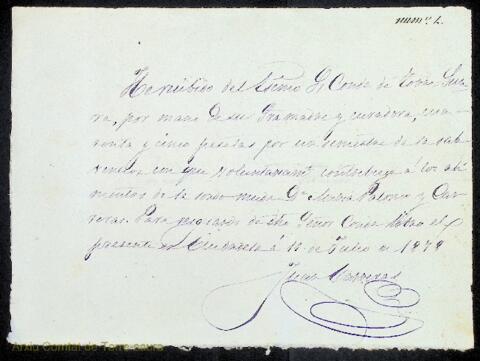 numº 1.
He recibido del Exmo Sr Conde de Torre-Sau-
ra, por mano de su Gramadre y curadora, cua-
renta y cinco pesetas por un semestre de la sub-
vencion con que voluntariamte contribuye á los ali-
mentos de la sordo-muda Dª Maria Palomo y Car-
reras. Para de dho Señor Conde libro el
presente en Ciudadela á 11 de Julio de 1879
Juan Carreras
Arxiu Comtal de Torre-saura